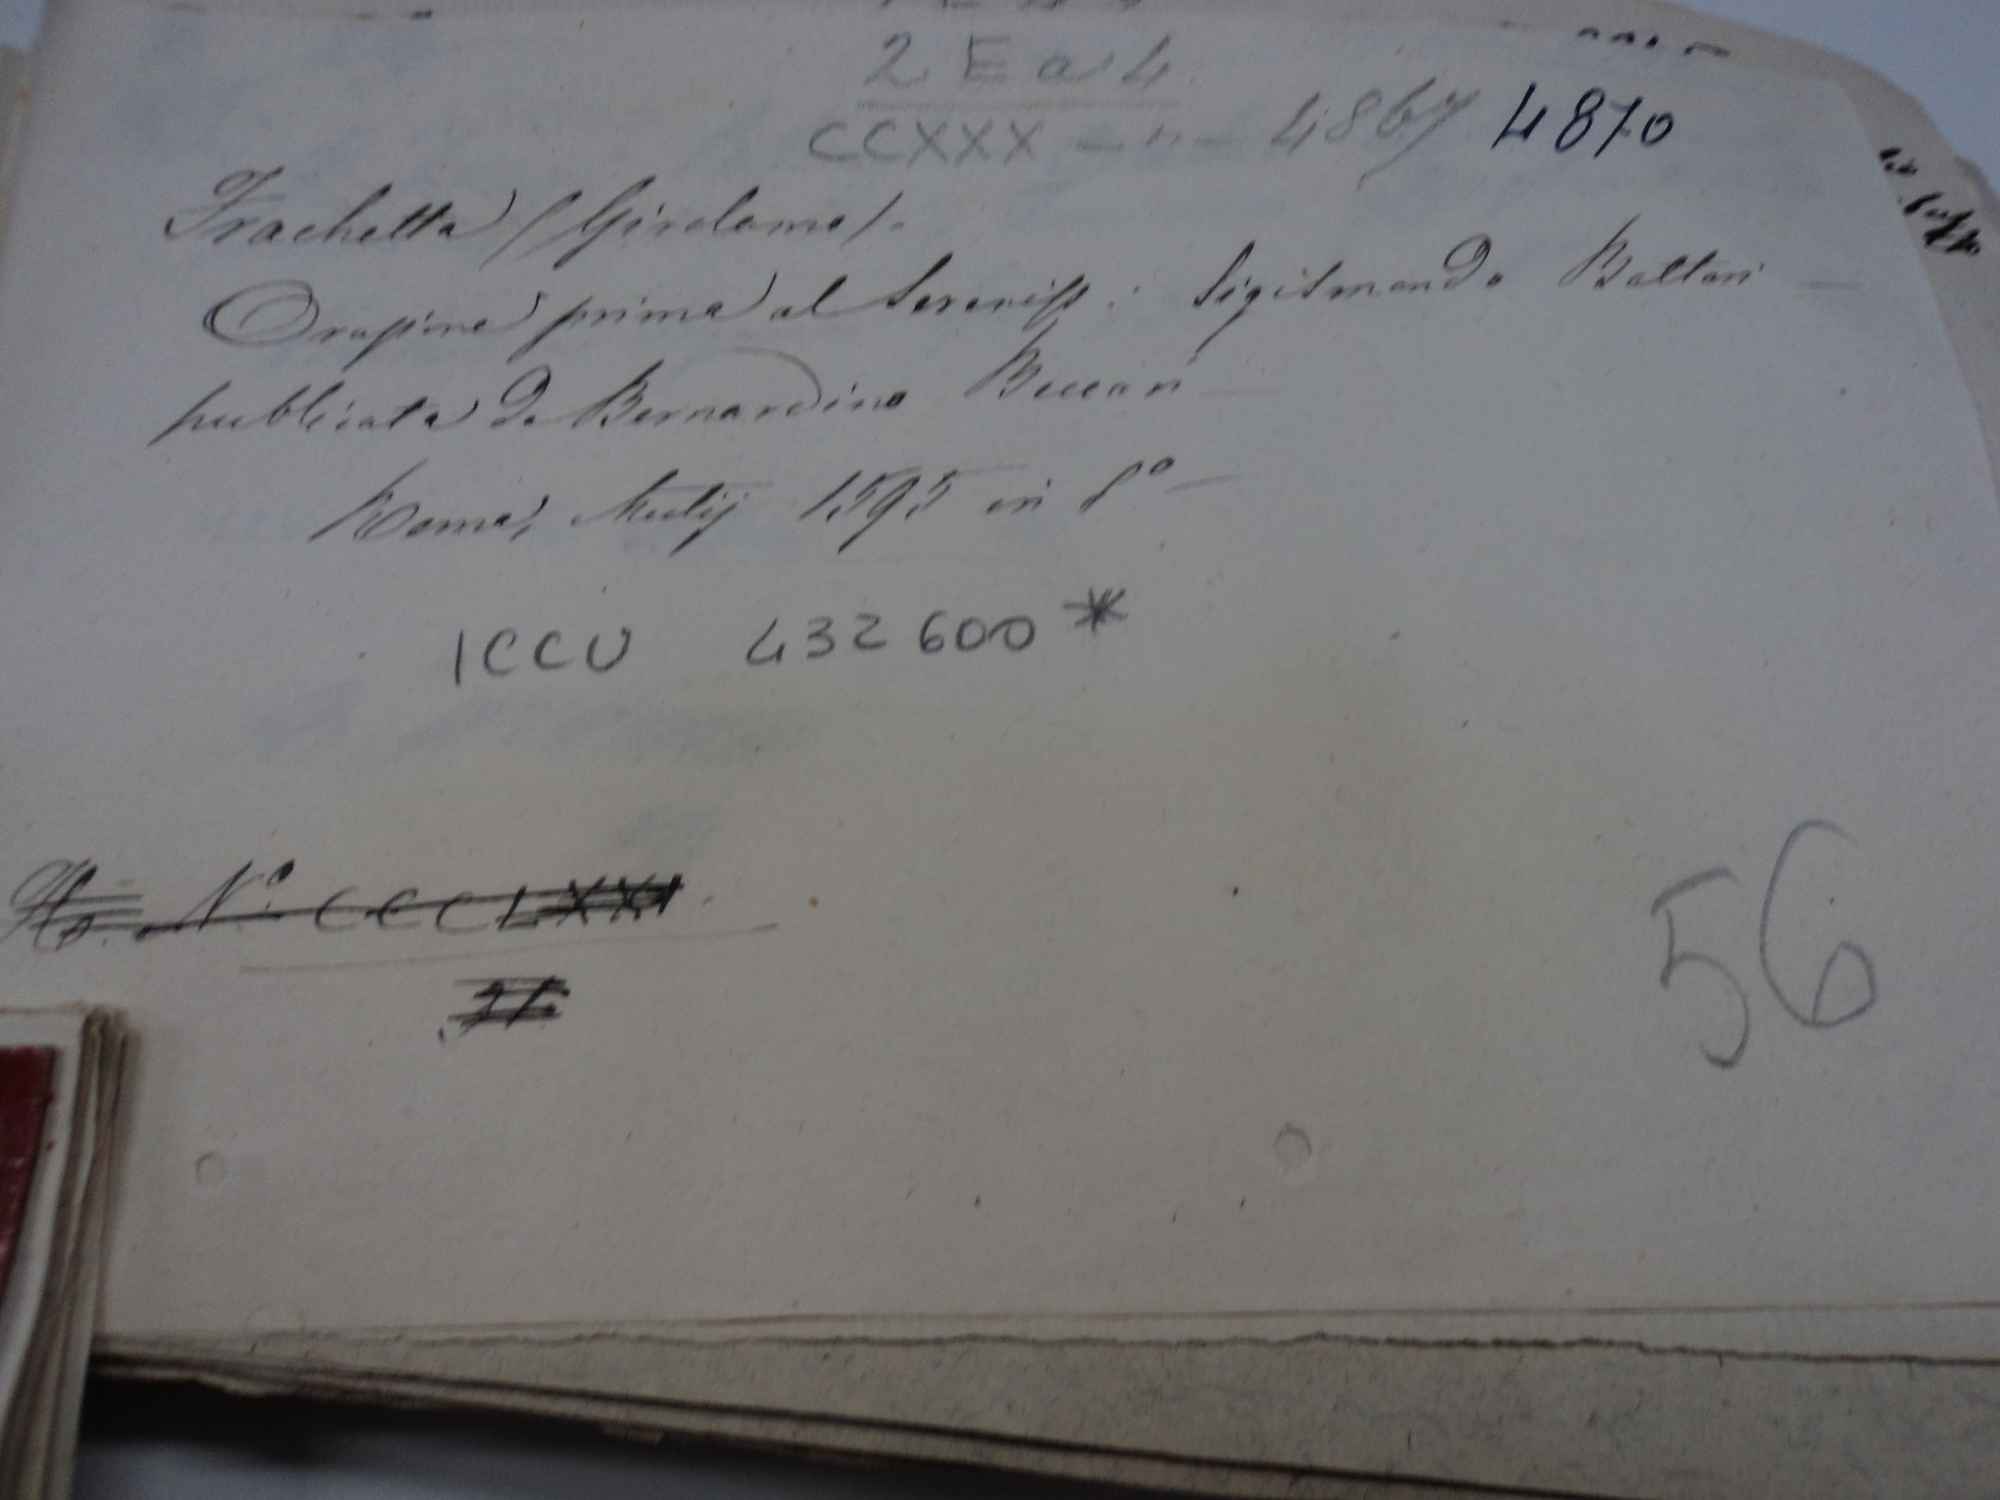 2 E a 4
CCXXX - " - 4867 4870
Frachetta (Girolamo).
Orazione prima al Sereniss. Sigismondo Battori —
publicata da Bernardino Beccari —
Roma, Mutij 1595 in 8° —
ICCU 432600*
N.° CCCLXXI
56